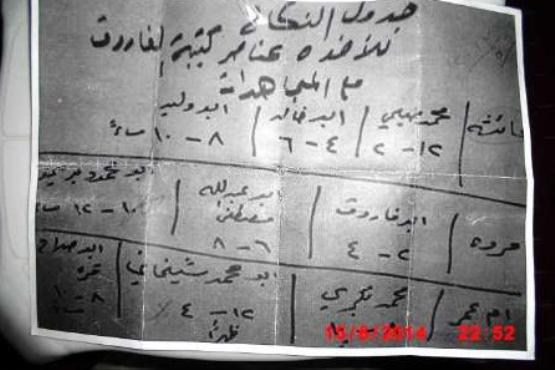 جدول النكاح
للأخوه عناصر كتيبة الفاروق
مع المجاهدات
عائشه | محمد | ابو خالد | ابو وليد
١٢-٢ | ٤-٦ | ٨-١٠ مساءً
مروه | ابو فاروق | ابو عبدالله مصطفى | ابو محمود
٢-٤ | ٦-٨ | ١٠-١٢
ام عمر | محمد | ابو محمد شيشاني | ابو صلاح
١٢-٤ ظهراً | ٨-١٠
15/6/2014 22:52